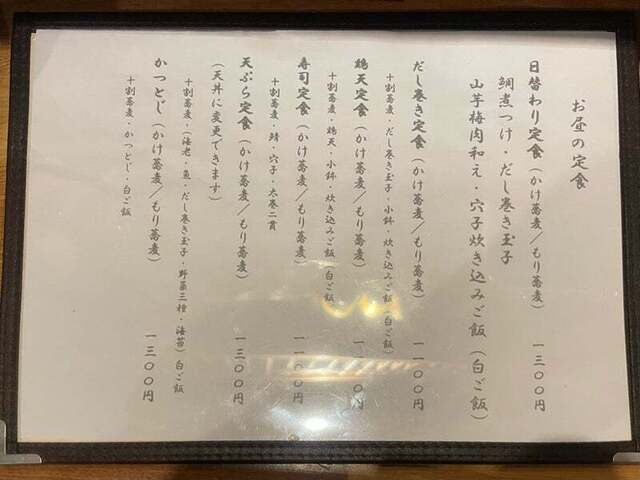 お昼の定食
日替わり定食（かけ蕎麦／もり蕎麦） 一三〇〇円
鯛煮つけ・だし巻き玉子
山芋梅肉和え・穴子炊き込みご飯（白ご飯）
だし巻き定食（かけ蕎麦／もり蕎麦） 一一〇〇円
十割蕎麦・だし巻き玉子・小鉢・炊き込みご飯（白ご飯）
鶏天定食（かけ蕎麦／もり蕎麦） 一一〇〇円
十割蕎麦・鶏天・小鉢・炊き込みご飯（白ご飯）
寿司定食（かけ蕎麦／もり蕎麦） 一一〇〇円
十割蕎麦・鯖・穴子・太巻二貫
天ぷら定食（かけ蕎麦／もり蕎麦） 一三〇〇円
（天丼に変更できます）
十割蕎麦・（海老・魚・だし巻き玉子・野菜三種・海苔）白ご飯
かつとじ（かけ蕎麦／もり蕎麦） 一三〇〇円
十割蕎麦・かつとじ・白ご飯